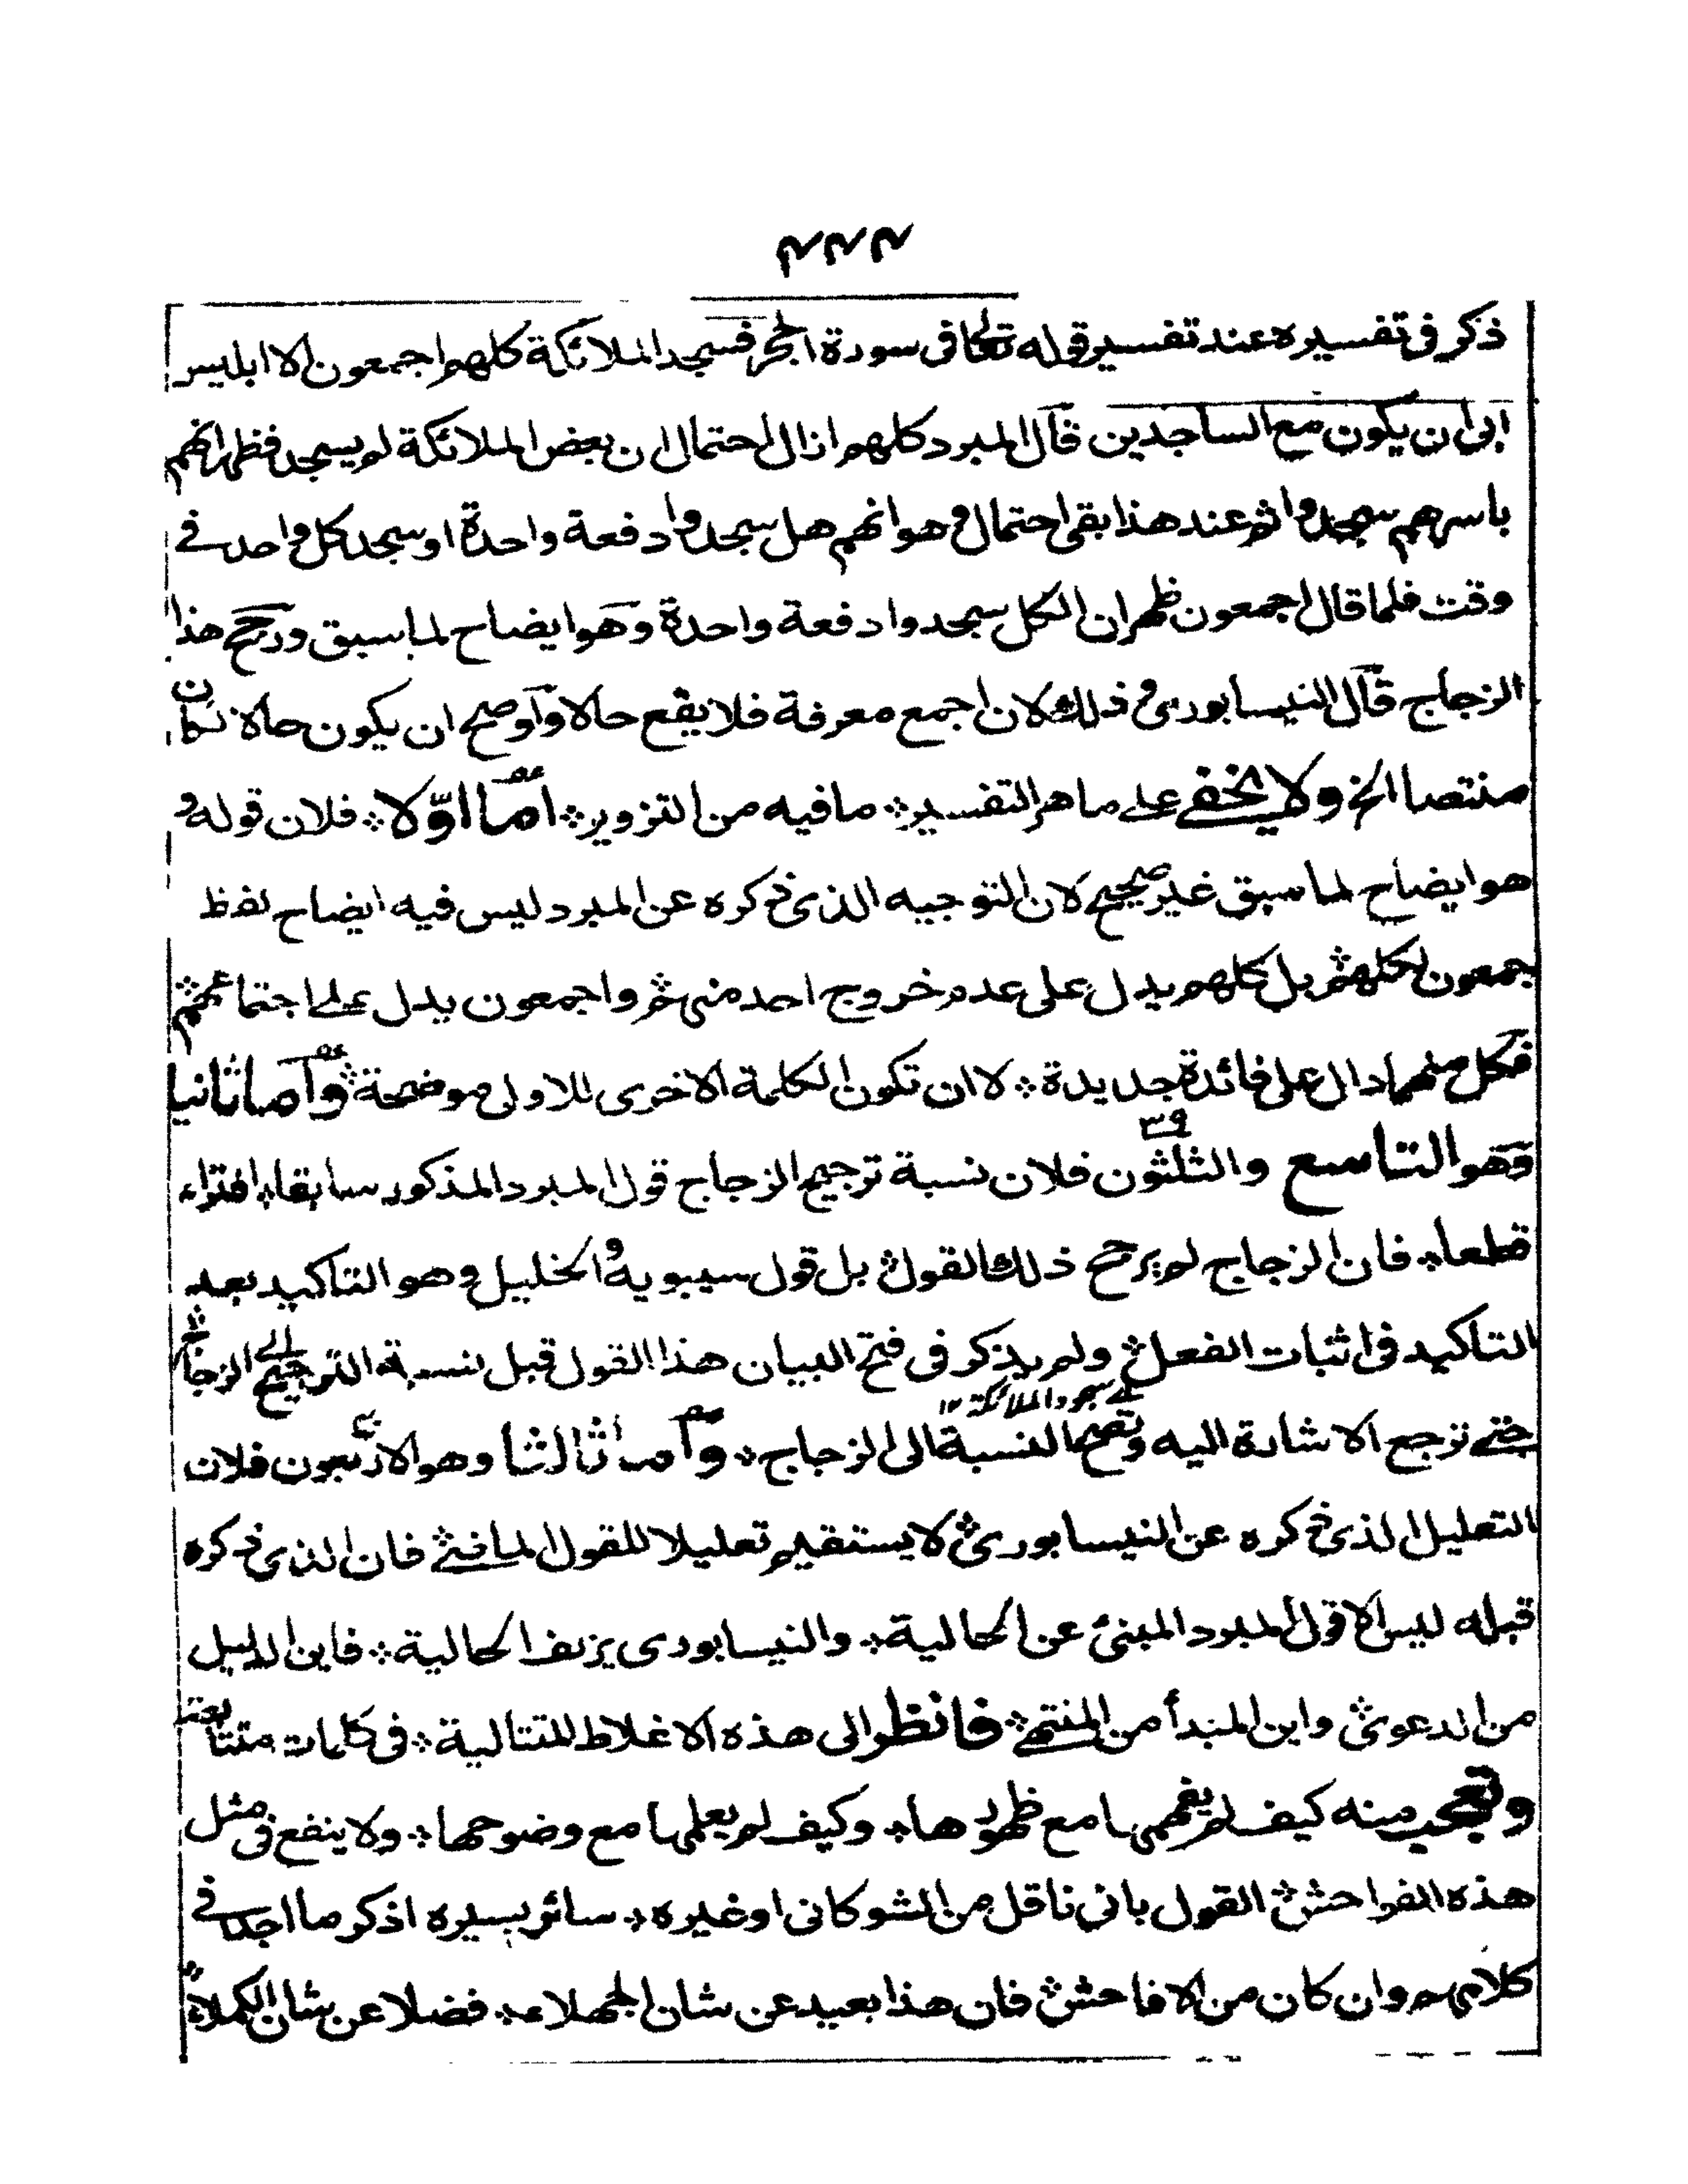 ٢٢٢
ذكر فى تفسيره عند تفسير قوله تعالى فى سورة الحجر فسجد الملائكة كلهم اجمعون الا ابليس
ابى ان يكون مع الساجدين قال المبرد كلهم ازال احتمال ان بعض الملائكة لم يسجد فظهر انهم
باسرهم سجدوا ثم عند هذا بقى احتمال وهو انهم هل سجدوا دفعة واحدة او سجد كل واحد فى
وقت فلما قال اجمعون ظهر ان الكل سجدوا دفعة واحدة وهو ايضاح لما سبق ورجح هذا
الزجاج قال النيسابورى وذلك لان اجمع معرفة فلا يقع حالا ولو صح ان يكون حالا لكان
منتصبا الخ ولا يخفى على ماهر التفسير ؞ ما فيه من التزوير ؞ اما اولا ؞ فلان قوله و
هو ايضاح لما سبق غير صحيح لان التوجيه الذى ذكره عن المبرد ليس فيه ايضاح لفظ
اجمعون لكلهم بل كلهم يدل على عدم خروج احد منهم واجمعون يدل على اجتماعهم
فكل منهما دال على فائدة جديدة ؞ لا ان تكون الكلمة الاخرى للاولى موضحة ؞ واما ثانيا
وهو التاسع والثلثون ٣٩ فلان نسبة ترجيح الزجاج قول المبرد المذكور سابقا ؞ افتراء
قطعا ؞ فان الزجاج لم يرجح ذلك القول ؞ بل قول سيبويه والخليل وهو التاكيد بعد
التاكيد فى اثبات الفعل ؞ ولم يذكر فى فتح البيان هذا القول قبل نسبة الترجيح الى الزجاج ؞
اے سجود الملائكة ١٢
حتى ترجع الاشارة اليه وتصح النسبة الى الزجاج ؞ واما ثالثا وهو الاربعون فلان
التعليل الذى ذكره عن النيسابورى ؞ لا يستقيم تعليلا للقول الماضى ؞ فان الذى ذكره
قبله ليس الا قول المبرد المبنئ عن الحالية ؞ والنيسابورى يزيف الحالية ؞ فاين الدليل
من الدعوى ؞ واين المبدأ من المنتهى ؞ فانظر الى هذه الاغلاط المتتالية ؞ فى كلمات متتابعة
وتعجب منه كيف لم يفهمها مع ظهورها ؞ وكيف لم يعلمها مع وضوحها ؞ ولا ينفع فى مثل
هذه الفواحش ؞ القول بانى ناقل من الشوكانى او غيره ؞ سائر بسيره اذكر ما اجد فى
كلامهم وان كان من الافاحش ؞ فان هذا بعيد عن شان الجهلاء ؞ فضلا عن شان الكملاء ؞